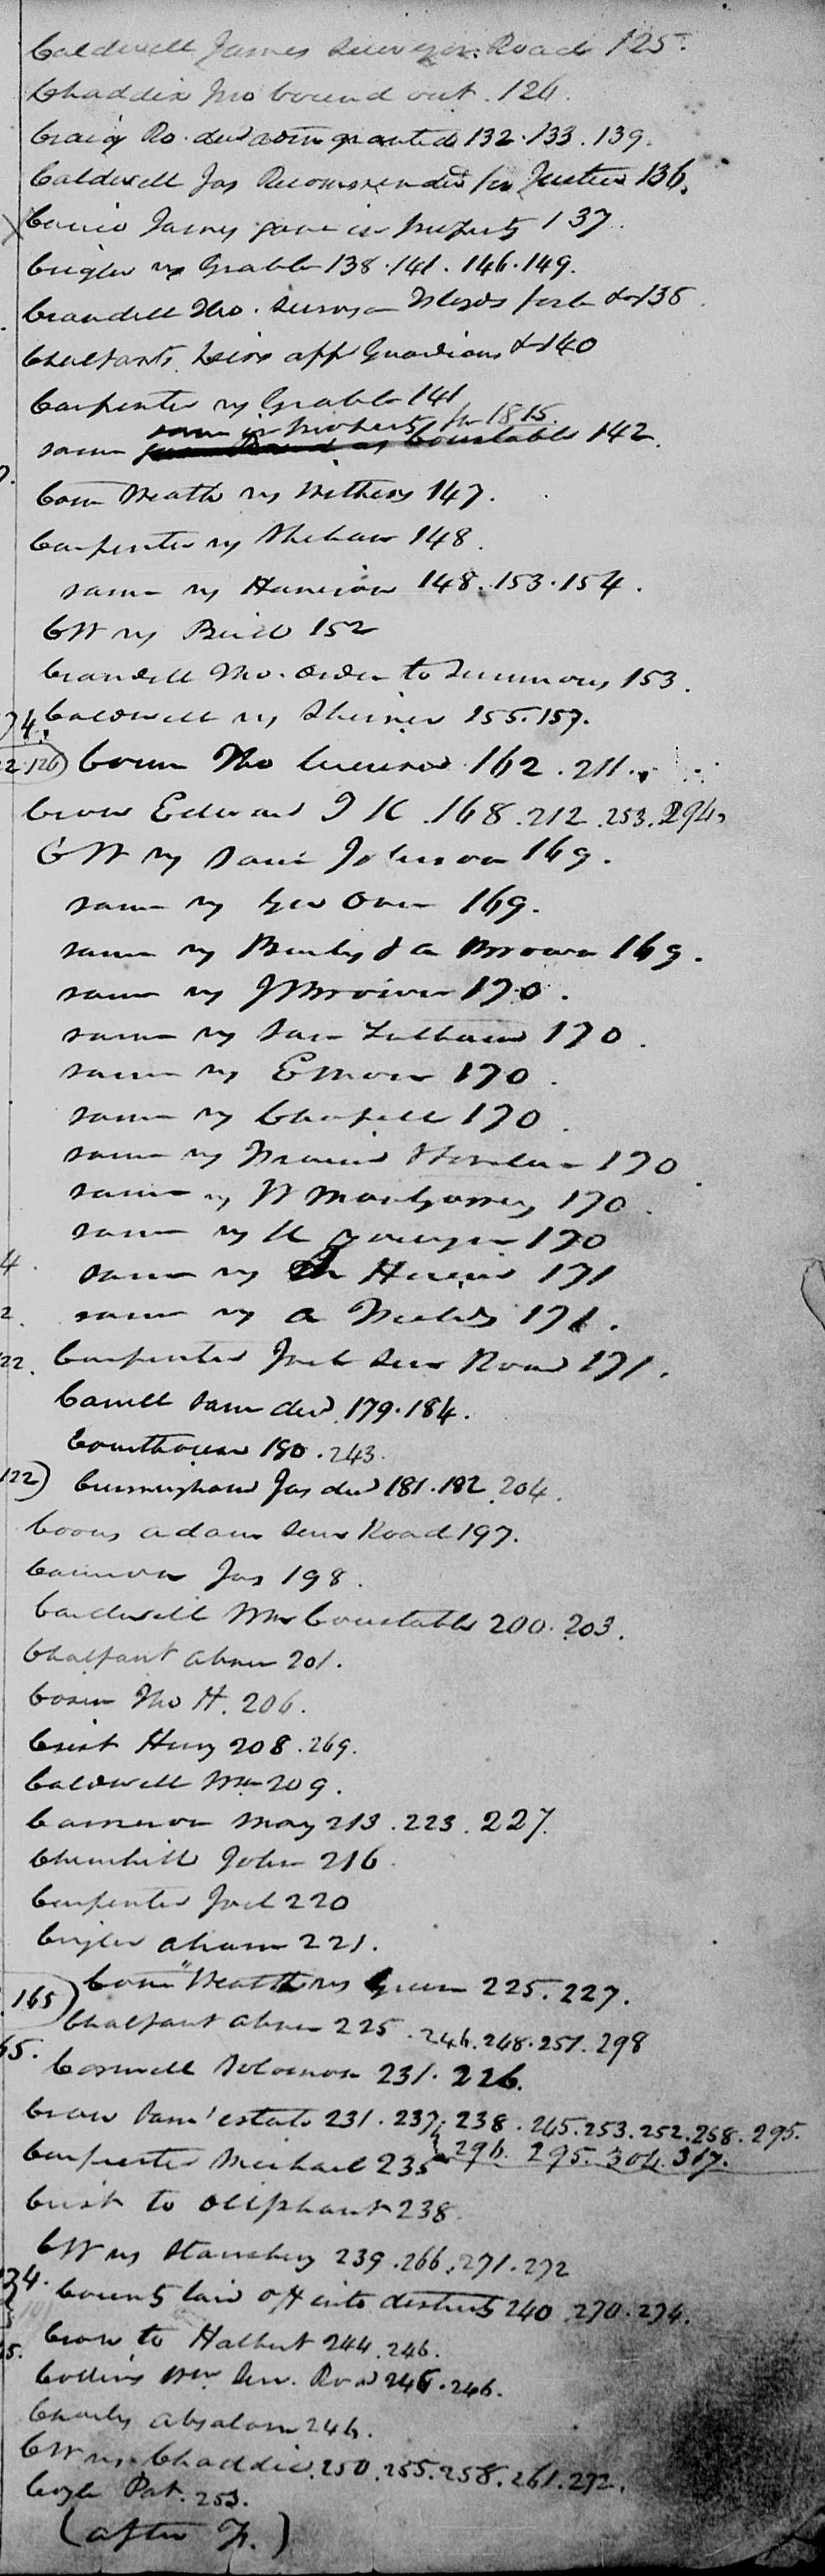 Caldwell James Surveyor Road 125.
Chaddix Jno bound out. 126.
Craig Ro. decd adm granted 132. 133. 139.
Caldwell Jas Recommended for Justice 136.
James gave in property 137.
Crigler vs Grable 138. 141. 146. 149.
Crandell Tho. Survyr Floyds fork &c 138.
Chalfants heirs app Guardians &c 140
Carpenter vs Grable 141
same in property for 1815.
same 142.
Com Wealth vs Withers 147.
Carpenter vs 148.
same vs Harrison 148. 153. 154.
CW vs Bird 152
Crandell Tho. Order to Summons 153.
Caldwell vs 155. 157.
74.
22. 126) Conn Tho 162. 211.
Crow Edward I K. 168. 212. 253. 294,
CW vs Saml Johnson 169.
same vs Geo Owen 169.
same vs & A Brown 169.
same vs J Brown 170.
same vs Saml 170.
same vs E Moore 170.
same vs Chapell 170.
same vs 170.
same vs W Montgomery 170.
same vs 170
4. same vs 171
2. same vs A 171.
22. Carpenter Joel Sur Road 171.
Camell Sam decd 179. 184.
Courthouse 180. 243.
122) Cunningham Jas decd 181. 182. 204.
Coons Adam Surv Road 197.
Cameron Jas 198.
Cardwell Wm Constable 200. 203.
Chalfant Abner 201.
Tho H. 206.
Crist Henry 208. 269.
Caldwell Wm 209.
Cameron May 213. 223. 227.
Churchill John 216.
Carpenter Joel 220
Crigler Abram 221.
165) Com Wealth vs Green 225. 227.
Chalfant Abner 225. 246. 248. 251. 298
65. Solomon 231. 226.
Crow Sam' estate 231. 237. 238. 245. 253. 252. 258. 295.
296. 295. 304. 317.
Carpenter Michael 235
Crist to Oliphant 238.
CW vs Stansbery 239. 266. 271. 272
34. County laid off into districts 240. 270. 274.
Crow to Halbert 244. 246.
Collins Wm Surv. Road 246. 246.
Absalom 246.
CW vs Chaddic. 250. 255. 258. 261. 272.
Coyle Pat. 253.
(after F.)